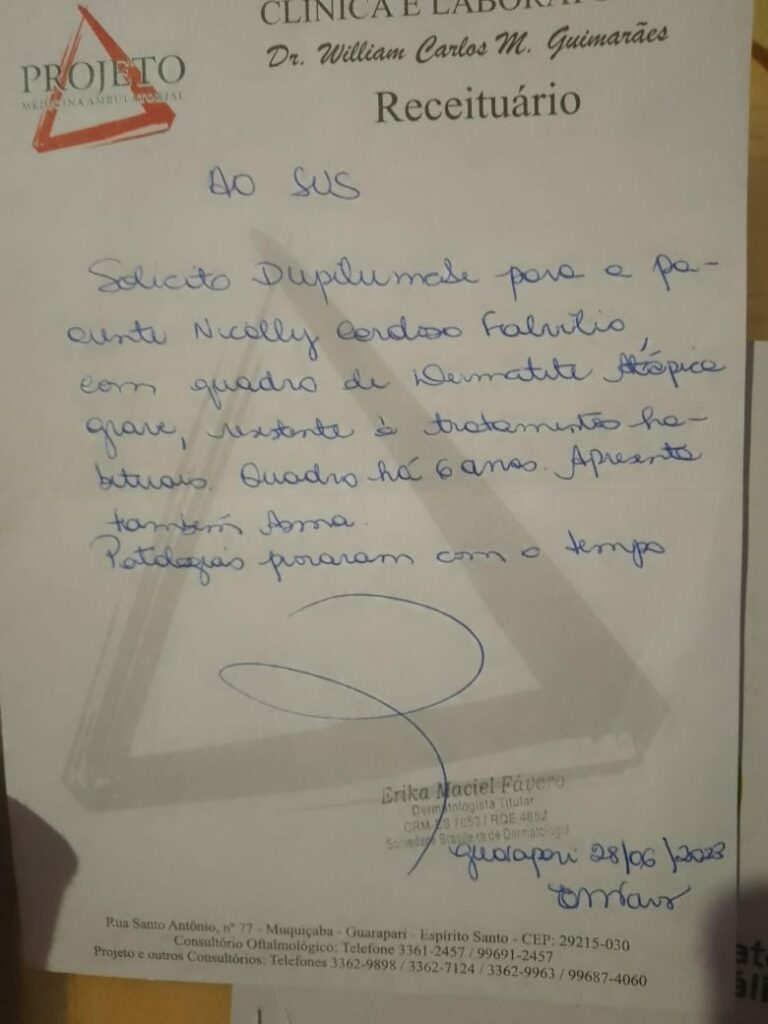 CLÍNICA E LABORATÓ
Dr. William Carlos M. Guimarães
PROJETO
MEDICINA AMBULATORIAL
Receituário
AO SUS
Solicito Dupilumabe para a pa-
ciente Nicolly Cardoso Falvílio,
com quadro de Dermatite Atópica
grave, resistente à tratamentos ha-
bituais. Quadro há 6 anos. Apresenta
também Asma.
Patologias pioraram com o tempo
Erika Maciel Fávero
Dermatologista Titular
CRM-ES 7652 / RQE 4852
Sociedade Brasileira de Dermatologia
Guarapari 28/06/2023
Rua Santo Antônio, nº 77 - Muquiçaba - Guarapari - Espírito Santo - CEP: 29215-030
Consultório Oftalmológico: Telefone 3361-2457 / 99691-2457
Projeto e outros Consultórios: Telefones 3362-9898 / 3362-7124 / 3362-9963 / 99687-4060